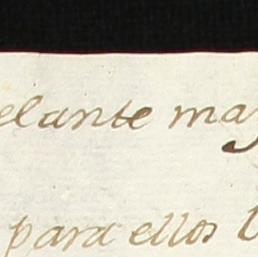 elante may
para ellos